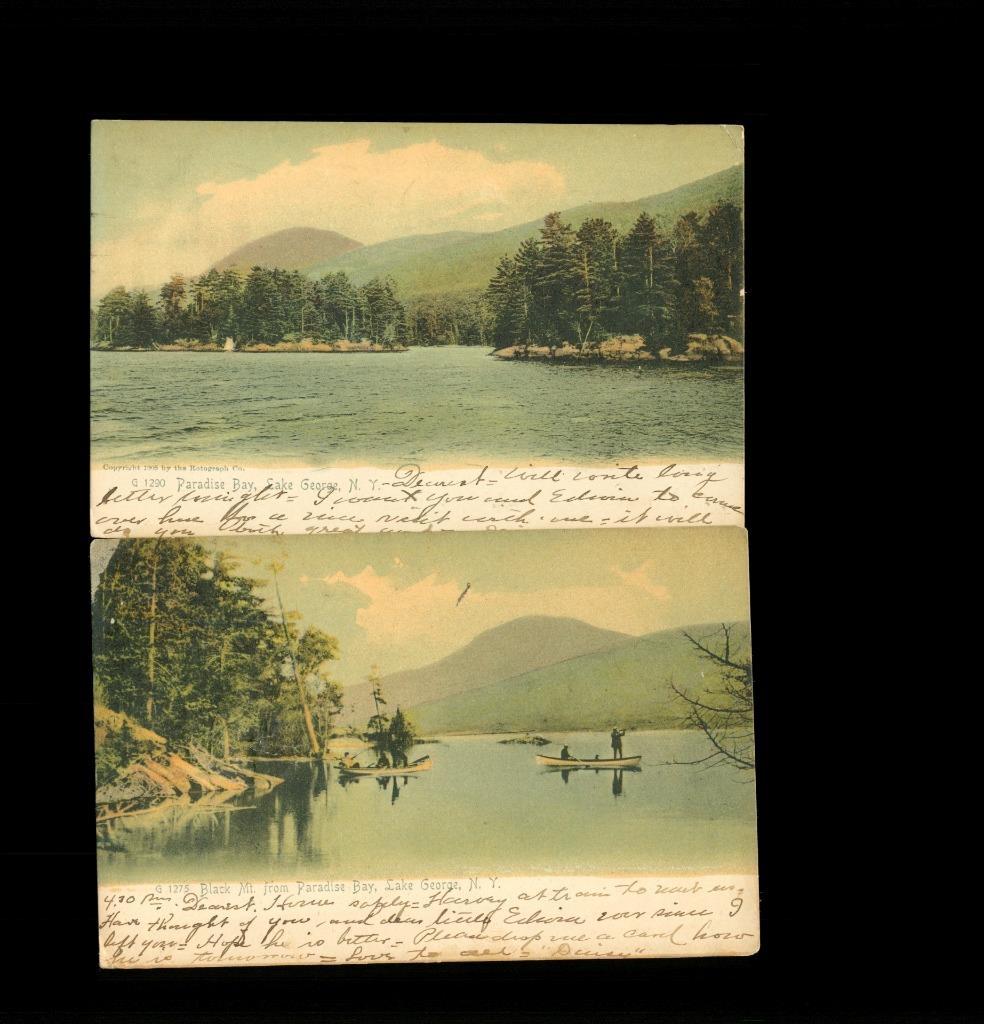 Copyright 1905 by the Rotograph Co.
G 1290 Paradise Bay, Lake George, N. Y. - Dearest = Will write long
letter tonight = I want you and Edwin to come
over here for a nice visit with me = it will
do you both great
G 1275 Black Mt. from Paradise Bay, Lake George, N. Y.
4.30 P.m. Dearest. Home safely = Harvey at train to meet us =
Have thought of you, and dear little Edwin ever since I
left you = Hope he is better = Please drop me a card how
he is tomorrow = Love to all = "Daisy"